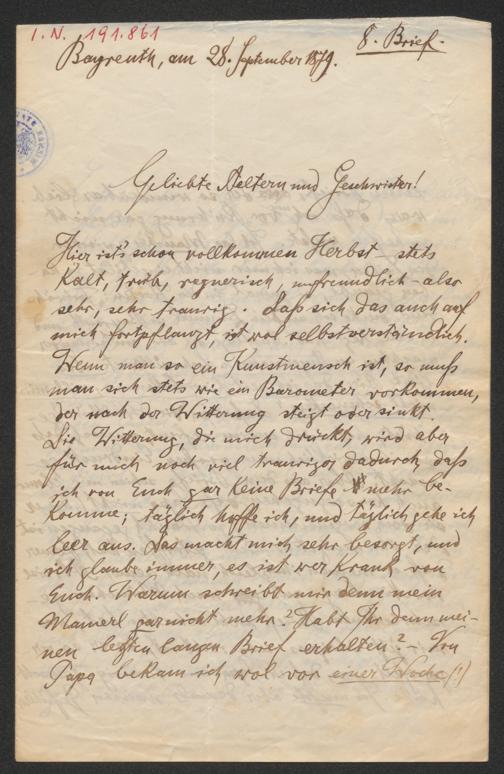 I. N. 191.861
8. Brief.
Bayreuth, am 28. September 1879.
Geliebte Aeltern und Geschwister!
Hier ist's schon vollkommen Herbst – stets
kalt, trüb, regnerisch, unfreundlich – also
sehr, sehr traurig. Daß sich das auch auf
mich fortpflanzt, ist wol selbstverständlich.
Wenn man so ein Kunstmensch ist, so muß
man sich stets wie ein Barometer vorkommen,
der nach der Witterung steigt oder sinkt
Die Witterung, die mich drückt, wird aber
für mich noch viel trauriger dadurch, daß
ich von Euch gar keine Briefe mehr be-
komme; täglich hoffe ich, und täglich gehe ich
leer aus. Das macht mich sehr besorgt, und
ich glaube immer, es ist wer krank von
Euch. Warum schreibt mir denn mein
Mamerl gar nicht mehr? Habt Ihr denn mei-
nen letzten langen Brief erhalten? – Von
Papa bekam ich wol vor einer Woche (!)